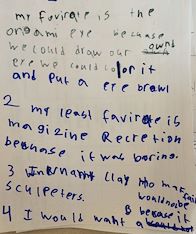 my favirate is the
orgami eye because
we could draw our own
eye we could color it
and put a eye brawl
2 my least favirate is
magizine Recretion
because it was boring.
3 clay
sculpeters.
4 I would want a